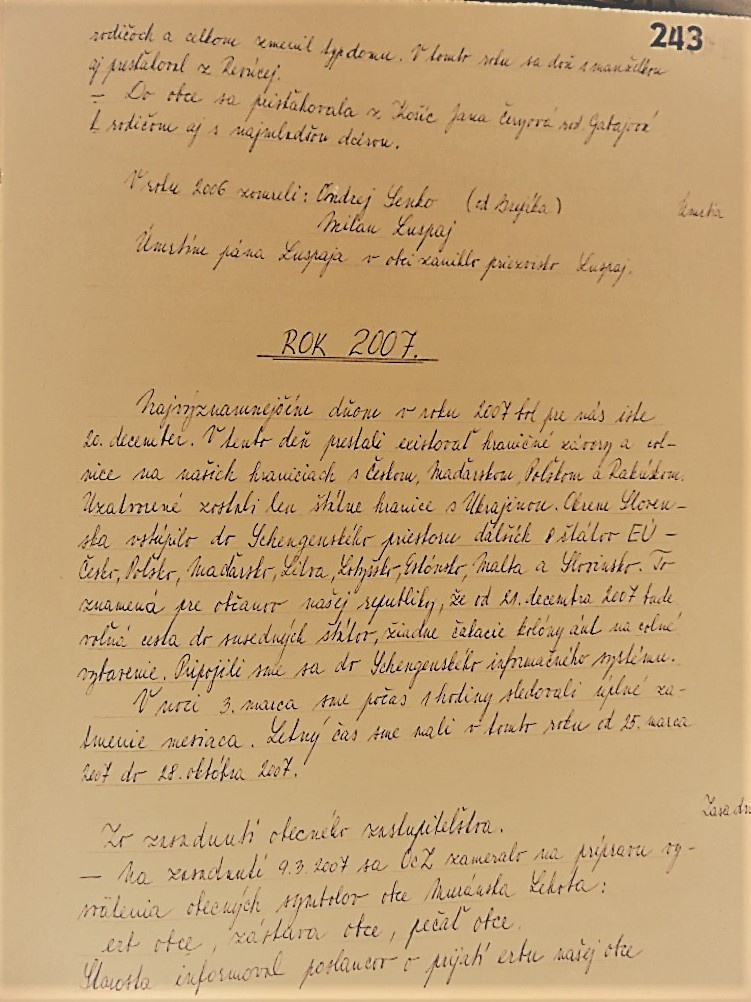 243
rodičoch a celkom zmenil typ domu. V tomto roku sa doň s manželkou
aj presťahoval z Revúcej.
– Do obce sa prisťahovala z Košíc Jana Čeryová rod. Gabajová
k rodičom aj s najmladšou dcérou.
V roku 2006 zomreli: Ondrej Senko (od Brejka)
Úmrtia
Milan Luspaj
Úmrtím pána Luspaja v obci zaniklo priezvisko Luspaj.
ROK 2007.
Najvýznamnejším dňom v roku 2007 bol pre nás iste
20. december. V tento deň prestali existovať hraničné závory a col-
nice na našich hraniciach s Českom, Maďarskom, Poľskom a Rakúskom.
Uzatvorené zostali len štátne hranice s Ukrajinou. Okrem Sloven-
ska vstúpilo do Schengenského priestoru ďalších 8 štátov EÚ –
Česko, Poľsko, Maďarsko, Litva, Lotyšsko, Estónsko, Malta a Slovinsko. To
znamená pre občanov našej republiky, že od 21. decembra 2007 bude
voľná cesta do susedných štátov, žiadne čakacie kolóny áut na colné
vybavenie. Pripojili sme sa do Schengenského informačného systému.
V noci 3. marca sme počas 1 hodiny sledovali úplné za-
tmenie mesiaca. Letný čas sme mali v tomto roku od 25. marca
2007 do 28. októbra 2007.
Zo zasadnutí obecného zastupiteľstva.
– Na zasadnutí 9.3.2007 sa OcZ zameralo na prípravu vy-
svätenia obecných symbolov obce Muránska Lehota:
erb obce, zástava obce, pečať obce.
Starosta informoval poslancov o prijatí erbu našej obce